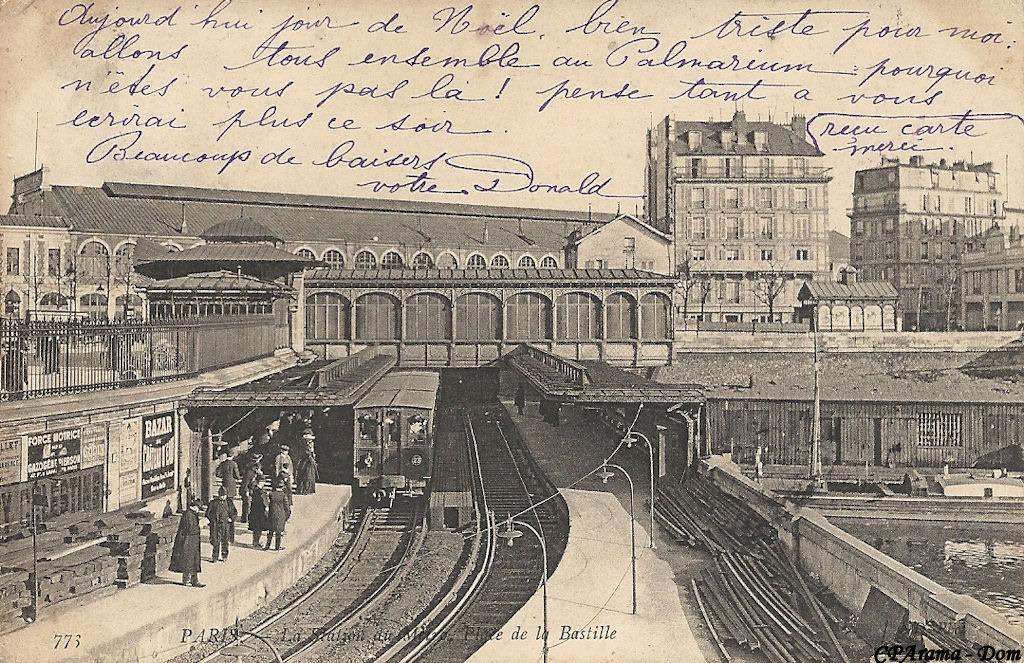 Aujourd'hui jour de Noël, bien triste pour moi.
allons tous ensemble au Palmarium pourquoi
n'êtes vous pas là ! pense tant a vous
ecrirai plus ce soir.
Beaucoup de baisers
votre Donald
recu carte
merci.
BAZAR
FORCE MOTRICE
PAR LE
GAZOGÈNE PIERSON
22
773 PARIS — La Station du Métro, Place de la Bastille
CPArama - Dom